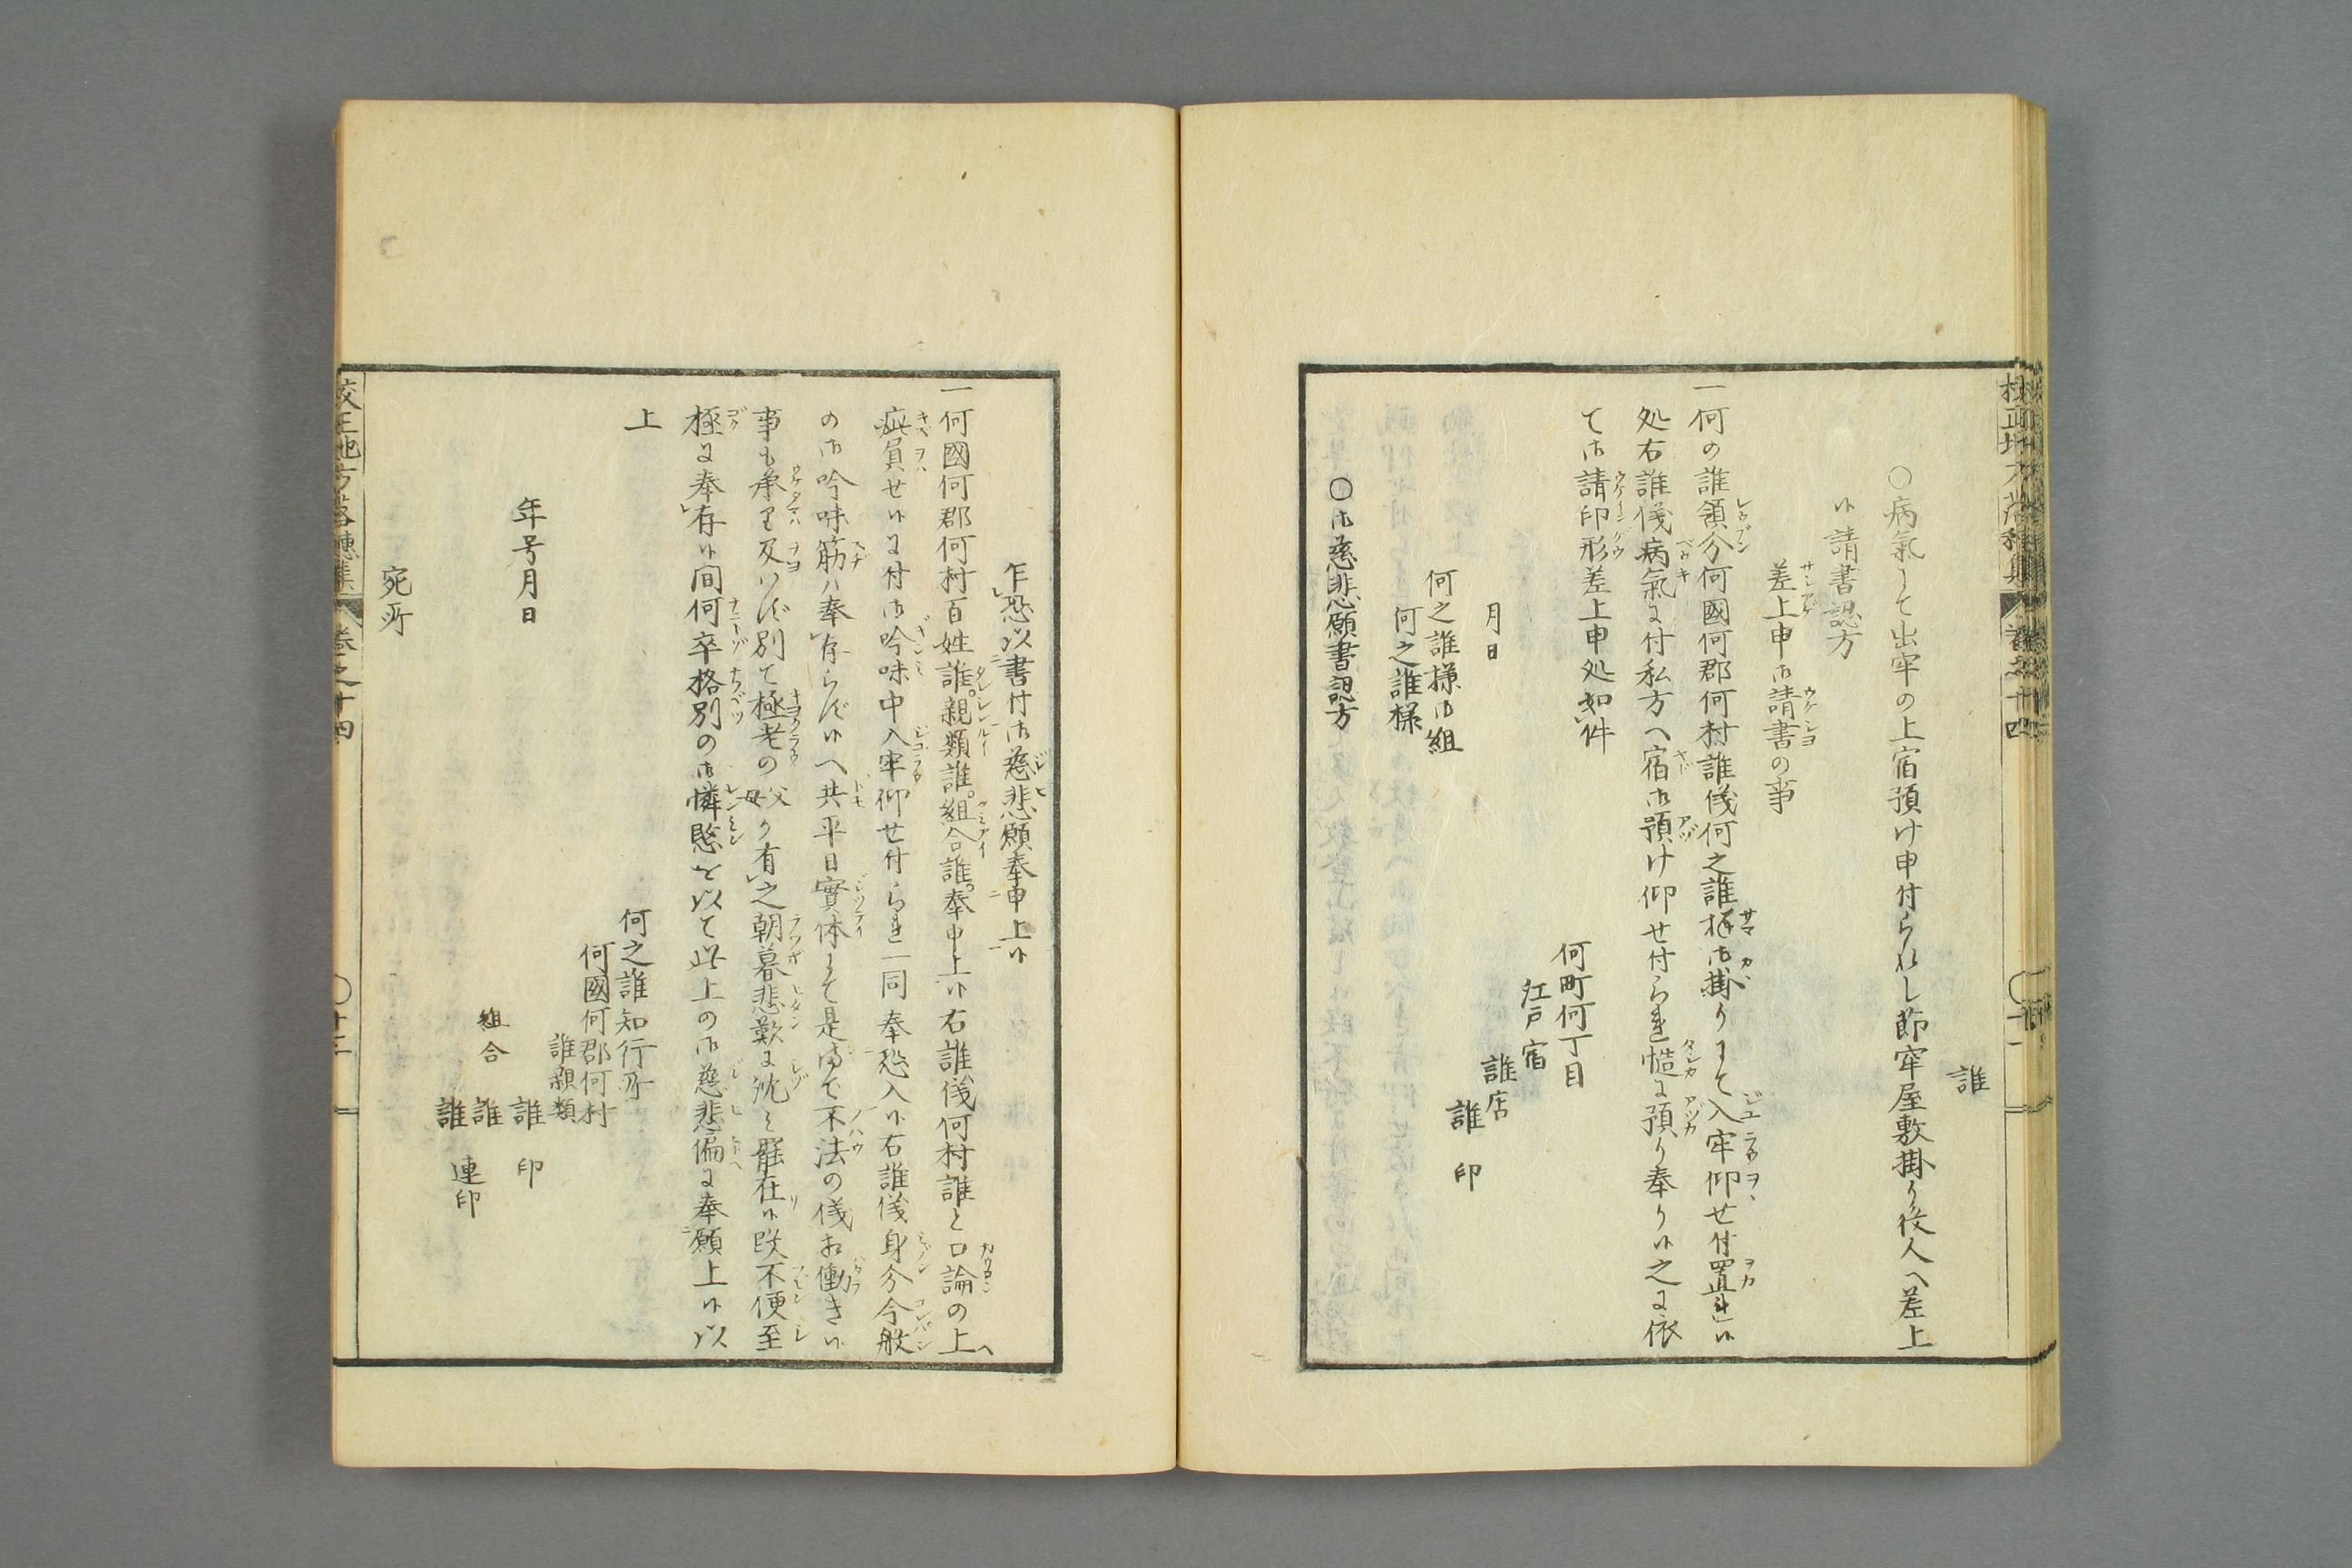 誰
○病氣にて出牢の上宿預け申付られし節牢屋敷掛り役人へ差上
候請書認方
差上申御請書の事
一何の誰領分何國何郡何村誰儀何之誰様御掛りにて入牢仰せ付置れ候
処右誰儀病氣に付私方へ宿御預け仰せ付られ慥に預り奉り候之に依
て御請印形差上申処如件
何町何丁目
江戸宿
誰店
誰 印
月日
何之誰様御組
何之誰様
○御慈悲願書認方
乍恐以書付御慈悲願奉申上候
一何國何郡何村百姓誰親類誰組合誰奉申上候右誰儀何村誰と口論の上
疵負せ候に付御吟味中入牢仰せ付られ一同奉恐入候右誰儀身分今般
の御吟味筋ハ奉存らず候へ共平日實体にて是まで不法の儀相働き候
事も承り及ハず別て極老の父母り有之朝暮悲歎に沈ミ罷在候段不便至
極に奉存候間何卒格別の御憐愍を以て此上の御慈悲偏に奉願上候以
上
何之誰知行所
何國何郡何村
誰親類
誰 印
組合
誰
誰 連印
年号月日
宛所
校正地方落穗集 卷之十四 ○十二